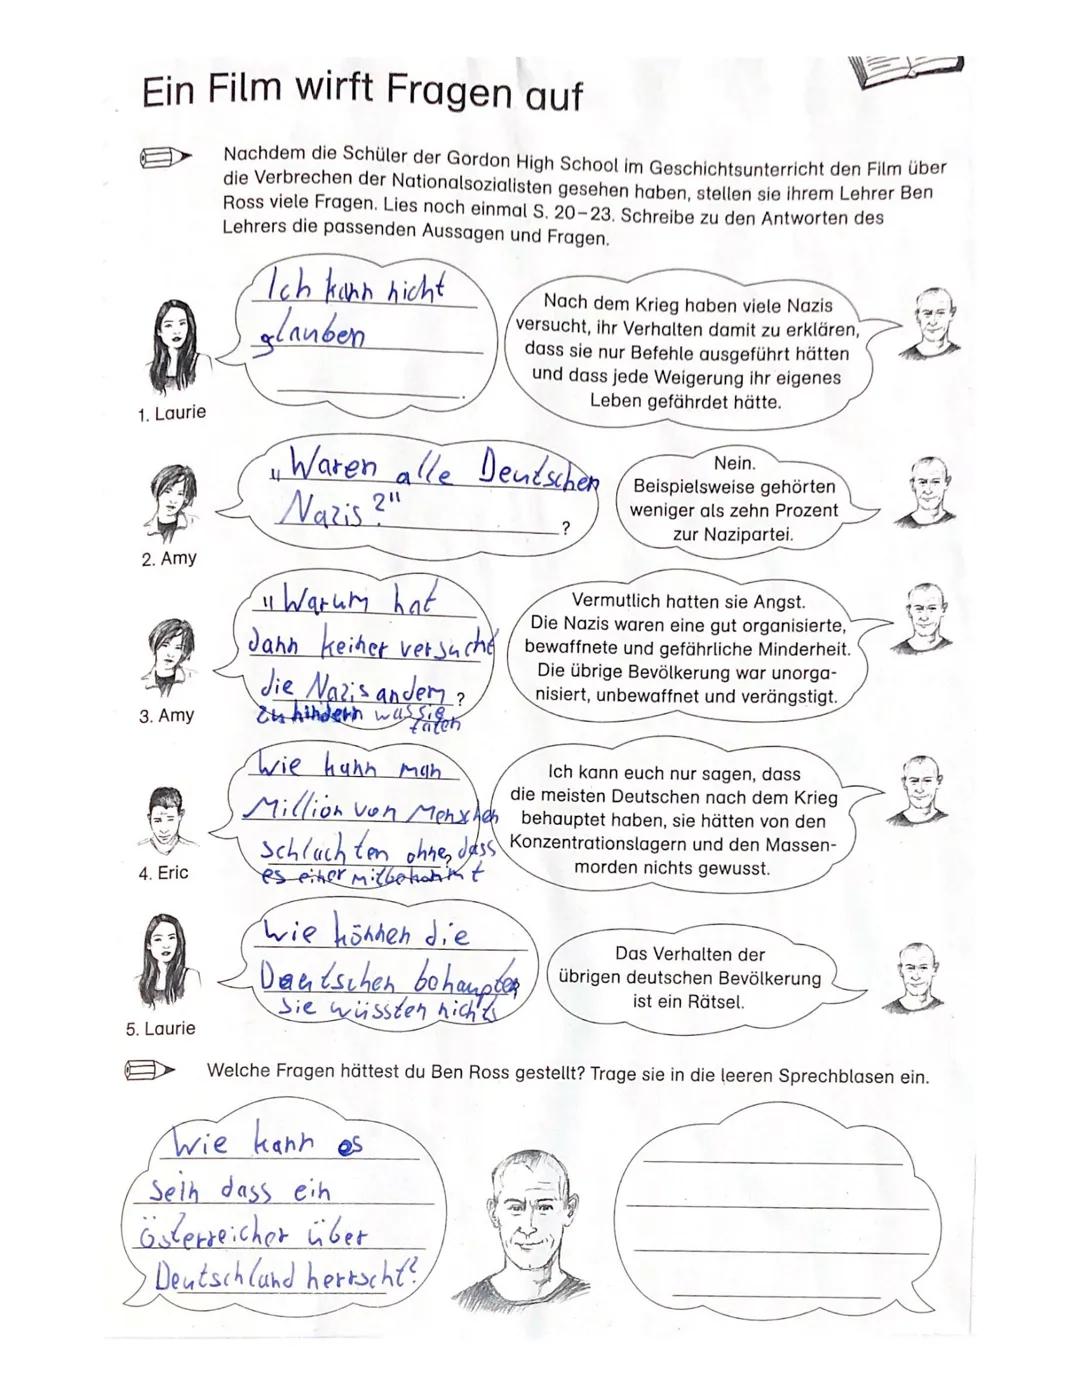 Ein Film wirft Fragen auf
Nachdem die Schüler der Gordon High School im Geschichtsunterricht den Film über
die Verbrechen der Nationalsozialisten gesehen haben, stellen sie ihrem Lehrer Ben
Ross viele Fragen. Lies noch einmal S. 20–23. Schreibe zu den Antworten des
Lehrers die passenden Aussagen und Fragen.
Ich kann nicht
glauben
.
1. Laurie
Nach dem Krieg haben viele Nazis
versucht, ihr Verhalten damit zu erklären,
dass sie nur Befehle ausgeführt hätten
und dass jede Weigerung ihr eigenes
Leben gefährdet hätte.
„Waren alle Deutschen
Nazis?"
?
2. Amy
Nein.
Beispielsweise gehörten
weniger als zehn Prozent
zur Nazipartei.
„Warum hat
dann keiner versucht
die Nazis andem ?
zu hindern was sie
taten
3. Amy
Vermutlich hatten sie Angst.
Die Nazis waren eine gut organisierte,
bewaffnete und gefährliche Minderheit.
Die übrige Bevölkerung war unorga-
nisiert, unbewaffnet und verängstigt.
Wie kann man
Million von Menschen
schlachten ohne, dass
es einer mitbekommt
4. Eric
Ich kann euch nur sagen, dass
die meisten Deutschen nach dem Krieg
behauptet haben, sie hätten von den
Konzentrationslagern und den Massen-
morden nichts gewusst.
Wie können die
Deutschen behaupten
sie wüssten nichts
5. Laurie
Das Verhalten der
übrigen deutschen Bevölkerung
ist ein Rätsel.
Welche Fragen hättest du Ben Ross gestellt? Trage sie in die leeren Sprechblasen ein.
Wie kann es
sein dass ein
Österreicher über
Deutschland herrscht?